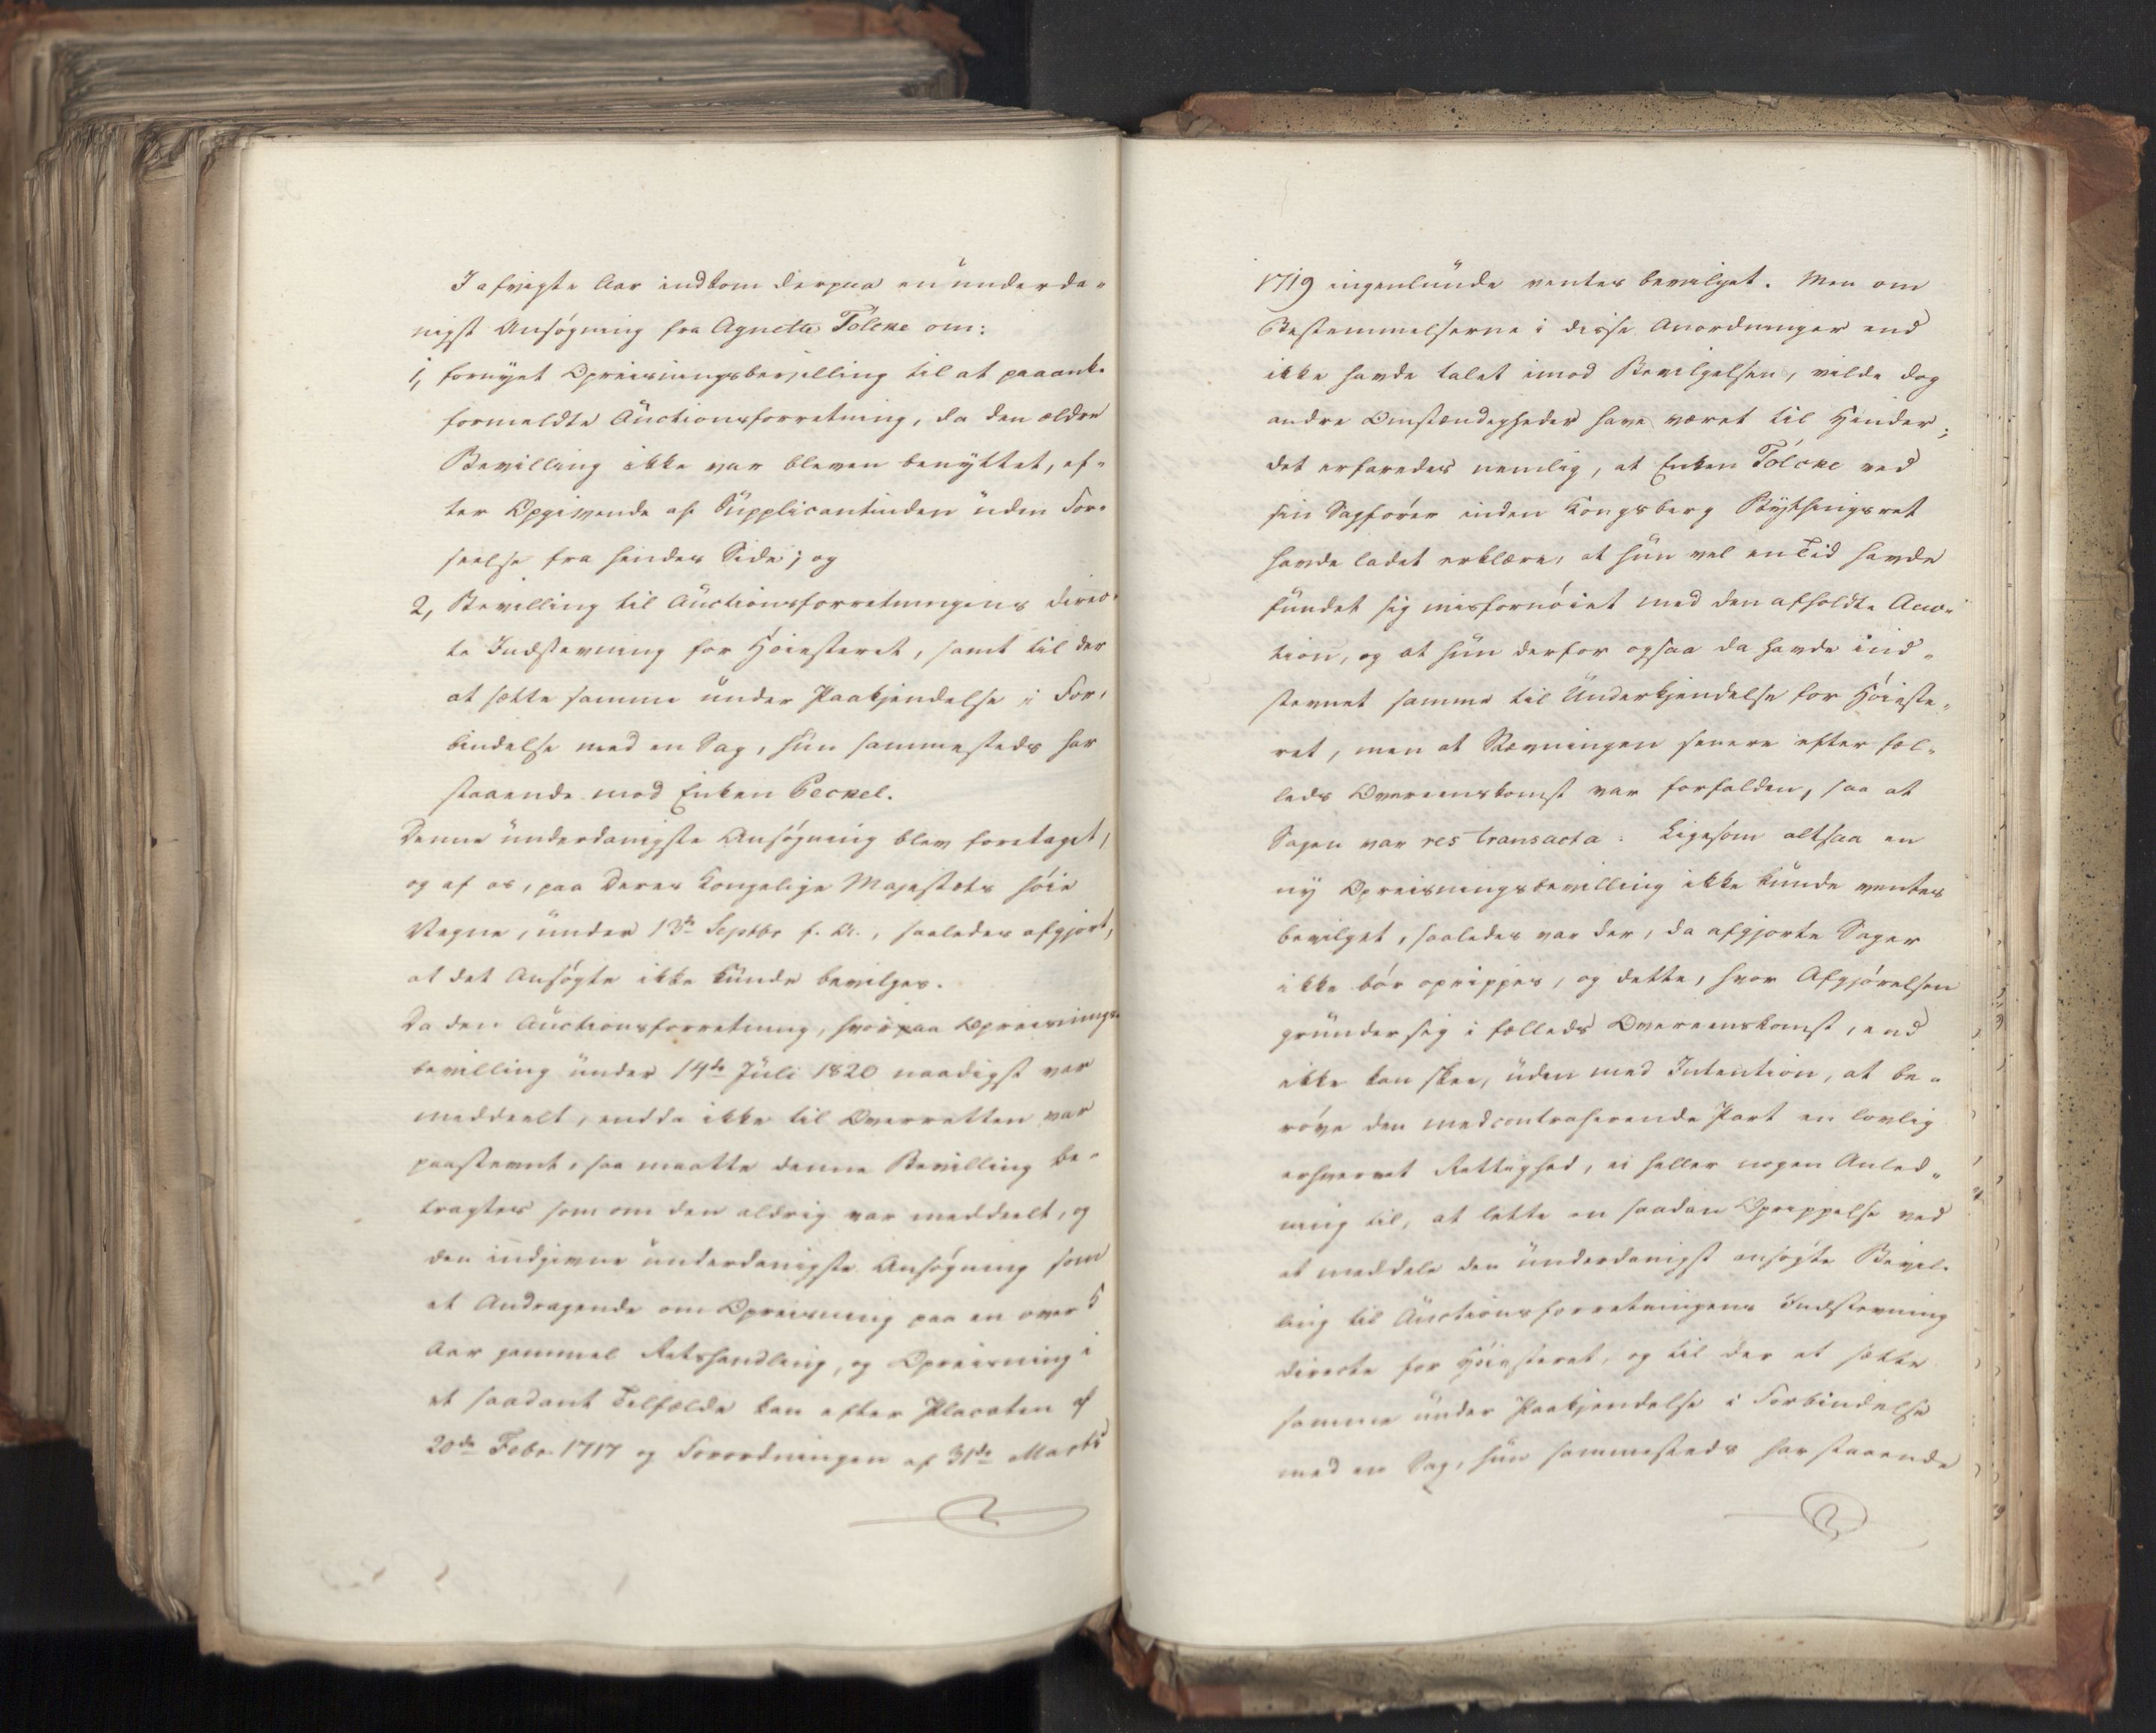 I afvigte Aar indkom derpaa en underda-
nigst Ansøgning fra Agnete Tolcke om:
1, fornyet Opreisningsbevilling til at paaanke
formeldte Auctionsforretning, da den ældre
Bevilling ikke var bleven benyttet, ef-
ter Opgivende af Supplicantinden uden For-
seelse fra hendes Side; og
2, Bevilling til Auctionsforretningens direc-
te Indstevning for Høiesteret, samt til der
at sætte samme under Paakjendelse i For-
bindelse med en Sag, hun sammesteds har
staaende mod Enken Peckel.
Denne underdanigste Ansøgning blev foretaget,
og af os, paa Deres Kongelige Majestæts høie
Vegne, under 13de Septbr f. A., saaledes afgjort,
at det Ansøgte ikke kunde bevilges.
Da den Auctionsforretning, hvorpaa Opreisnings-
bevilling under 14de Juli 1820 naadigst var
meddeelt, endda ikke til Overretten var
paastevnt, saa maatte denne Bevilling be-
tragtes som om den aldrig var meddeelt, og
den indgivne underdanigste Ansøgning som
et Andragende om Opreisning paa en over 5
Aar gammel Retshandling, og Opreisning i
et saadant Tilfælde kan efter Placaten af
20de Febr. 1717 og Forordningen af 31de Marts
1719 ingenlunde ventes bevilget. Men om
Bestemmelserne i disse Anordninger end
ikke havde talet imod Bevilgelsen, vilde dog
andre Omstændigheder have været til Hinder;
det erfaredes nemlig, at Enken Tolcke ved
sin Sagfører inden Kongsberg Bythingsret
havde ladet erklære, at hun vel en Tid havde
fundet sig misfornøiet med den afholdte Auc-
tion, og at hun derfor ogsaa da havde ind-
stevnet samme til Underkjendelse for Høieste-
ret, men at Stævningen senere efter fæl-
leds Overeenskomst var forfalden, saa at
Sagen var res transacta. Ligesom altsaa en
ny Opreisningsbevilling ikke kunde ventes
bevilget, saaledes var der, da afgjorte Sager
ikke bør oprippes, og dette, hvor Afgjørelsen
grunder sig i fælleds Overeenskomst, end
ikke kan skee, uden med Intention, at be-
røve den medcontraherende Part en lovlig
erhvervet Rettighed, ei heller nogen Anled-
ning til, at lette en saadan Oprippelse ved
at meddele den underdanigst ansøgte Bevil-
ling til Auctionsforretningens Indstevning
directe for Høiesteret, og til der at sætte
samme under Paakjendelse i Forbindelse
med en Sag, hun sammesteds har staaende